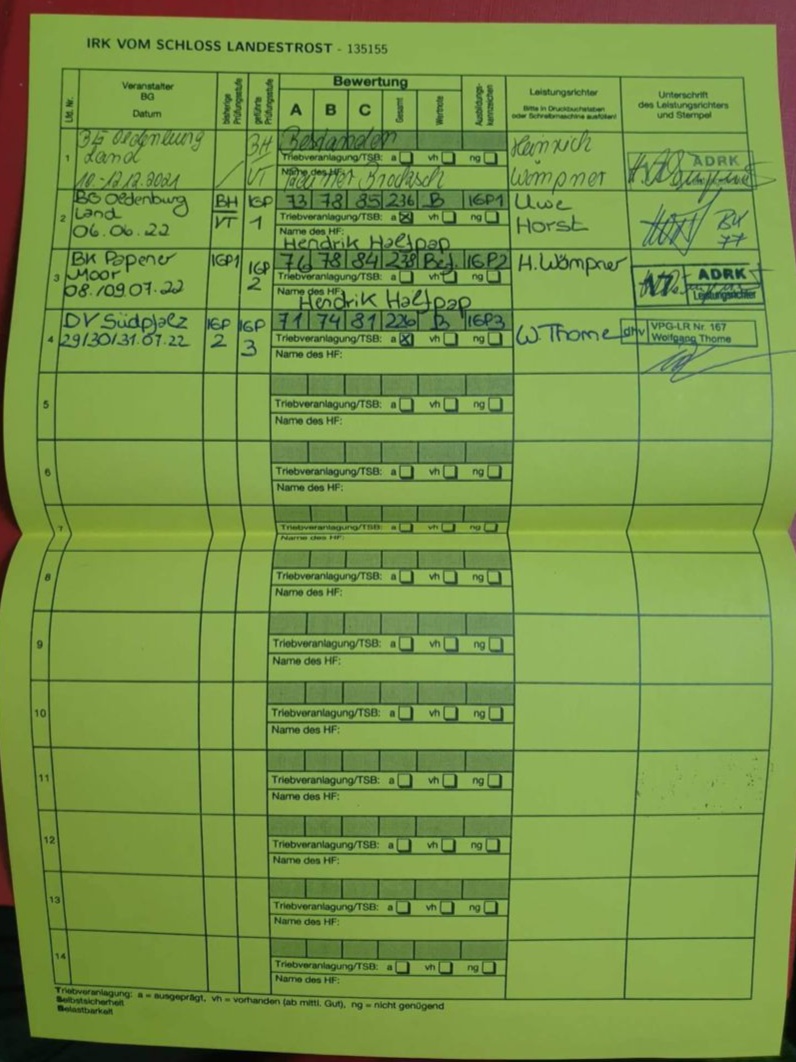 IRK VOM SCHLOSS LANDESTROST - 135155
Lfd. Nr.
Veranstalter
BG
Datum
bisherige Prüfungsstufe
geführte Prüfungsstufe
Bewertung
A B C Gesamt Wertnote
Ausbildungs-
kennzeichen
Leistungsrichter
Bitte in Druckbuchstaben
oder Schreibmaschine ausfüllen!
Unterschrift
des Leistungsrichters
und Stempel
1
BG Oldenburg
Land
10.-12.12.2021
BH
VT
Bestanden
Triebveranlagung/TSB: a vh ng
Name des HF:
Heinrich
Wömpner
ADRK
2
BG Oldenburg
Land
06.06.22
BH
VT
IGP
1
73 78 85 236 B IGP1
Triebveranlagung/TSB: a vh ng
Name des HF:
Hendrik Halfpap
Uwe
Horst
3
BK Papener
Moor
08./09.07.22
IGP1
IGP
2
76 78 84 238 Bef. IGP2
Triebveranlagung/TSB: a vh ng
Name des HF:
Hendrik Halfpap
H. Wömpner
ADRK
Leistungsrichter
4
DV Südpfalz
29/30/31.07.22
IGP
2
IGP
3
71 74 81 226 B IGP3
Triebveranlagung/TSB: a vh ng
Name des HF:
W. Thome
dhv
VPG-LR Nr. 167
Wolfgang Thome
5
Triebveranlagung/TSB: a vh ng
Name des HF:
6
Triebveranlagung/TSB: a vh ng
Name des HF:
7
Triebveranlagung/TSB: a vh ng
Name des HF:
8
Triebveranlagung/TSB: a vh ng
Name des HF:
9
Triebveranlagung/TSB: a vh ng
Name des HF:
10
Triebveranlagung/TSB: a vh ng
Name des HF:
11
Triebveranlagung/TSB: a vh ng
Name des HF:
12
Triebveranlagung/TSB: a vh ng
Name des HF:
13
Triebveranlagung/TSB: a vh ng
Name des HF:
14
Triebveranlagung/TSB: a vh ng
Name des HF:
Triebveranlagung: a = ausgeprägt, vh = vorhanden (ab mittl. Gut), ng = nicht genügend
Selbstsicherheit
Belastbarkeit